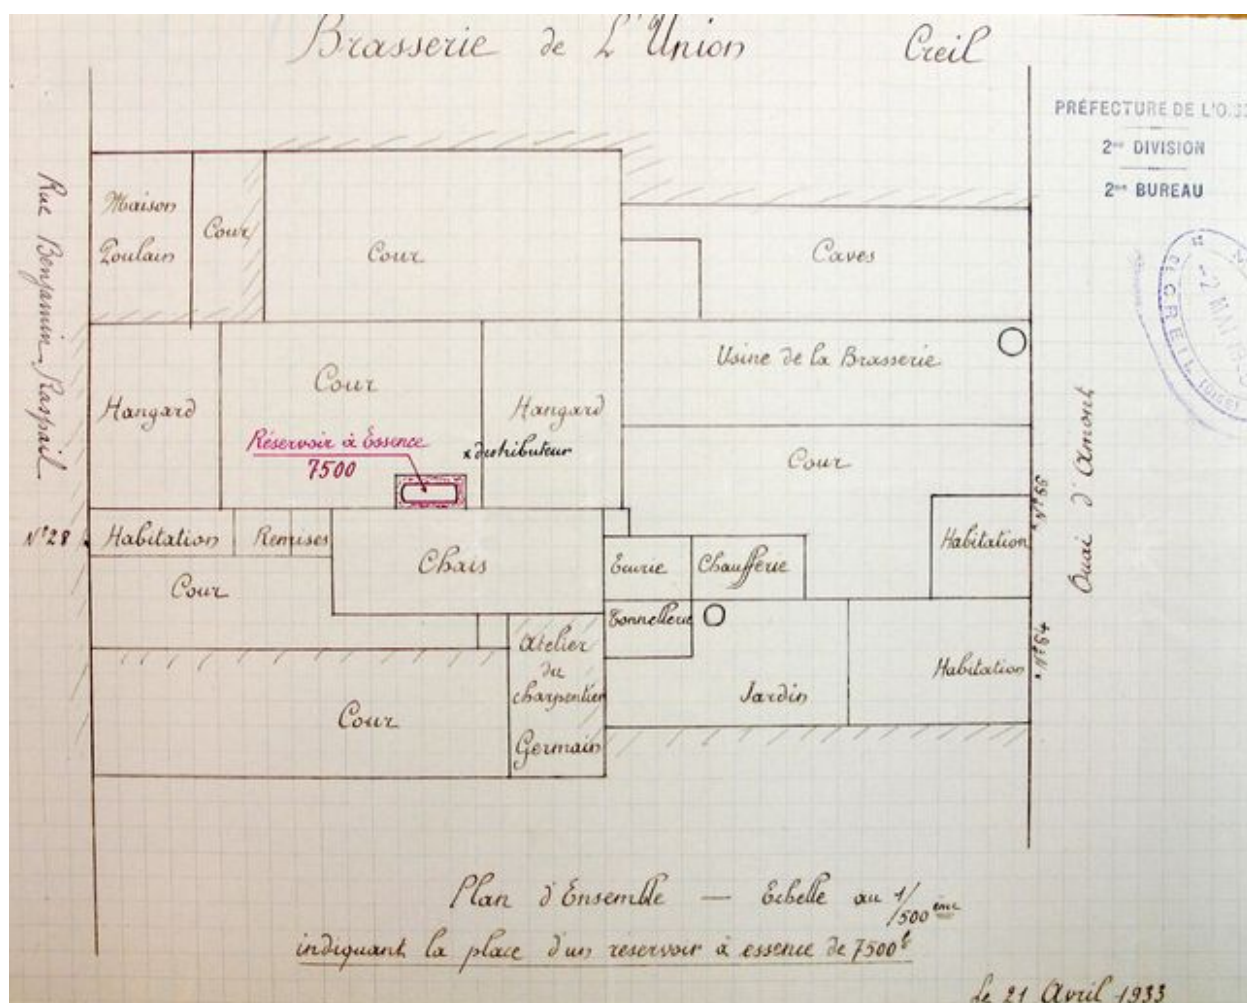 Brasserie de L'Union Creil
PRÉFECTURE DE L'O
2me DIVISION
2me BUREAU
CREIL (OISE)
2 MAI
Rue Benjamin Raspail
Maison
Poulain
Cour
Cour
Caves
Hangard
Cour
Hangard
Usine de la Brasserie
Réservoir à Essence
7500
x distributeur
Cour
Quai d'Amont
N° 66
N° 28
Habitation
Remises
Chais
Ecurie
Chaufferie
Habitation
Cour
Tonnellerie
Atelier
du
charpentier
Germain
Jardin
Habitation
N° 64
Cour
Plan d'Ensemble — Echelle au 1/500 ème
indiquant la place d'un réservoir à essence de 7500 l
le 21 Avril 1933